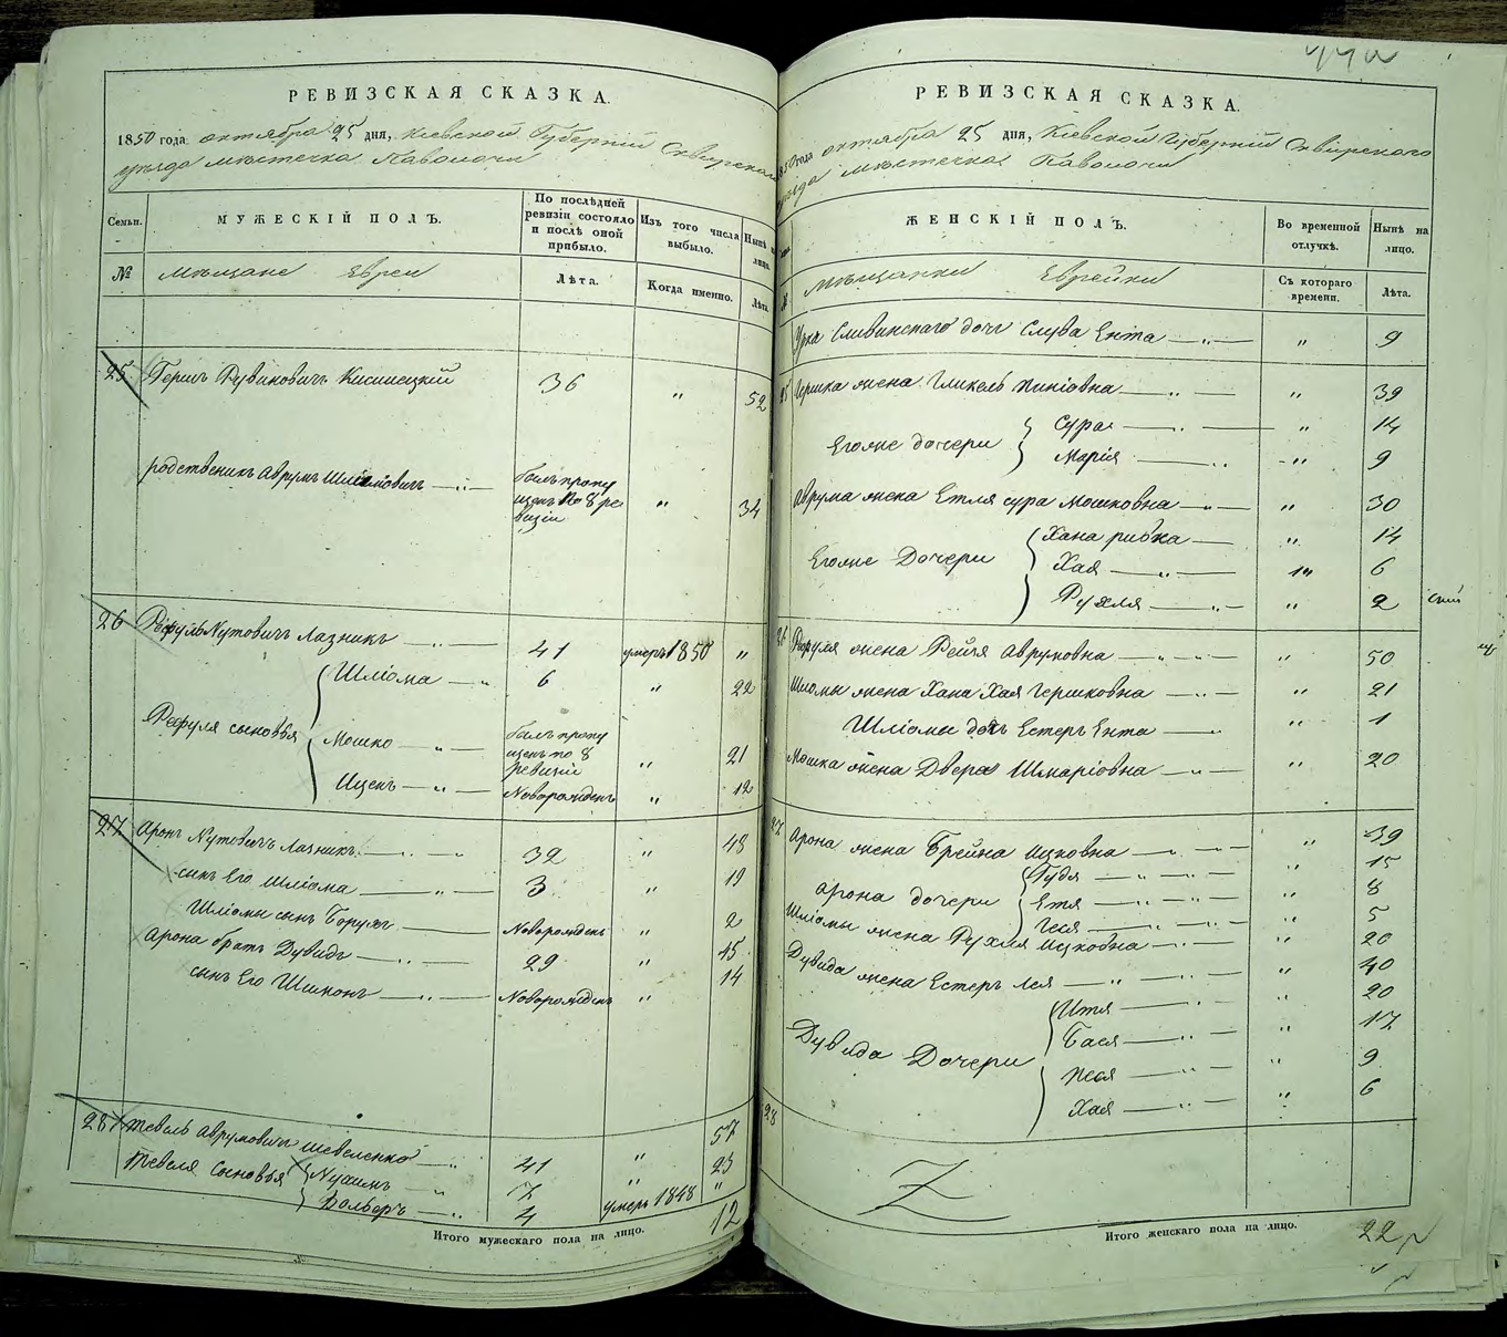 РЕВИЗСКАЯ СКАЗКА.
1850 года октября 25 дня, Кіевской Губерніи Сквирскаго
уѣзда мѣстечка Паволочи
Семьи. МУЖЕСКІЙ ПОЛЪ. По послѣдней ревизіи состояло и послѣ оной прибыло. Изъ того числа выбыло. Нынѣ на лицо.
№ Мѣщане Евреи Лѣта. Когда именно. Лѣта.
25 Гершъ Рувиновичъ Кисилецкій 36 " 52
родственикъ Аврумъ Шліомовичъ — " — былъ пропущенъ по 8 ревизіи " 34
26 Рефулъ Нутовичъ Лазникъ — " — 41 умеръ 1850 "
Рефуля сыновья
Шліома — " 6 " 22
Мошко — " — былъ пропущенъ по 8 ревизіи " 21
Ицекъ — " — Новорожденъ " 12
27 Аронъ Нутовичъ Лазникъ — " — " 32 " 48
сынъ Его Шліома — " — 3 " 19
Шліомы сынъ Борухъ — Новорожденъ " 2
Арона братъ Дувидъ — " — 29 " 45
сынъ Его Шимонъ — " — Новорожденъ " 14
28 Тевель Аврумовичъ Шевеленко — " 41 " 57
Тевеля Сыновья
Нухимъ — " 7 " 23
Вольберъ — " 4 умеръ 1848 "
Итого мужескаго пола на лицо. 12
РЕВИЗСКАЯ СКАЗКА.
1850 года октября 25 дня, Кіевской Губерніи Сквирскаго
уѣзда мѣстечка Паволочи
ЖЕНСКІЙ ПОЛЪ. Во временной отлучкѣ. Нынѣ на лицо.
№ Мѣщанки Еврейки Съ котораго времени. Лѣта.
Сливинскаго дочь Слува Ента — " — " 9
25 Гершка жена Гликель Пиніовна — " — " 39
Егоже дочери
Сура — " — " 14
Марія — " " 9
Аврума жена Етля сура Мошковна — " — " 30
Егоже Дочери
Хана ривка — " 14
Хая — " — " 6
Рухля — " — " 2
26 Рефуля жена Рейзя Аврумовна — " — " — " 50
Шломы жена Хана Хая Гершковна — " — " 21
Шліомы дочь Естеръ Ента — " " 1
Мошка жена Двера Шмаріовна — " — " 20
27 Арона жена Брейна Ицковна — " — " — " 39
Арона дочери
Гудя — " — " — " 15
Етя — " — " — " 8
Геся — " — " — " 5
Шліомы жена Рухля Ицковна — " — " 20
Дувида жена Естеръ Лея — " — " — " 40
Дувида Дочери
Итя — " — " 20
Бася — " — " 17
Песя — " — " 9
Хая — " — " 6
28
Итого женскаго пола на лицо. 22